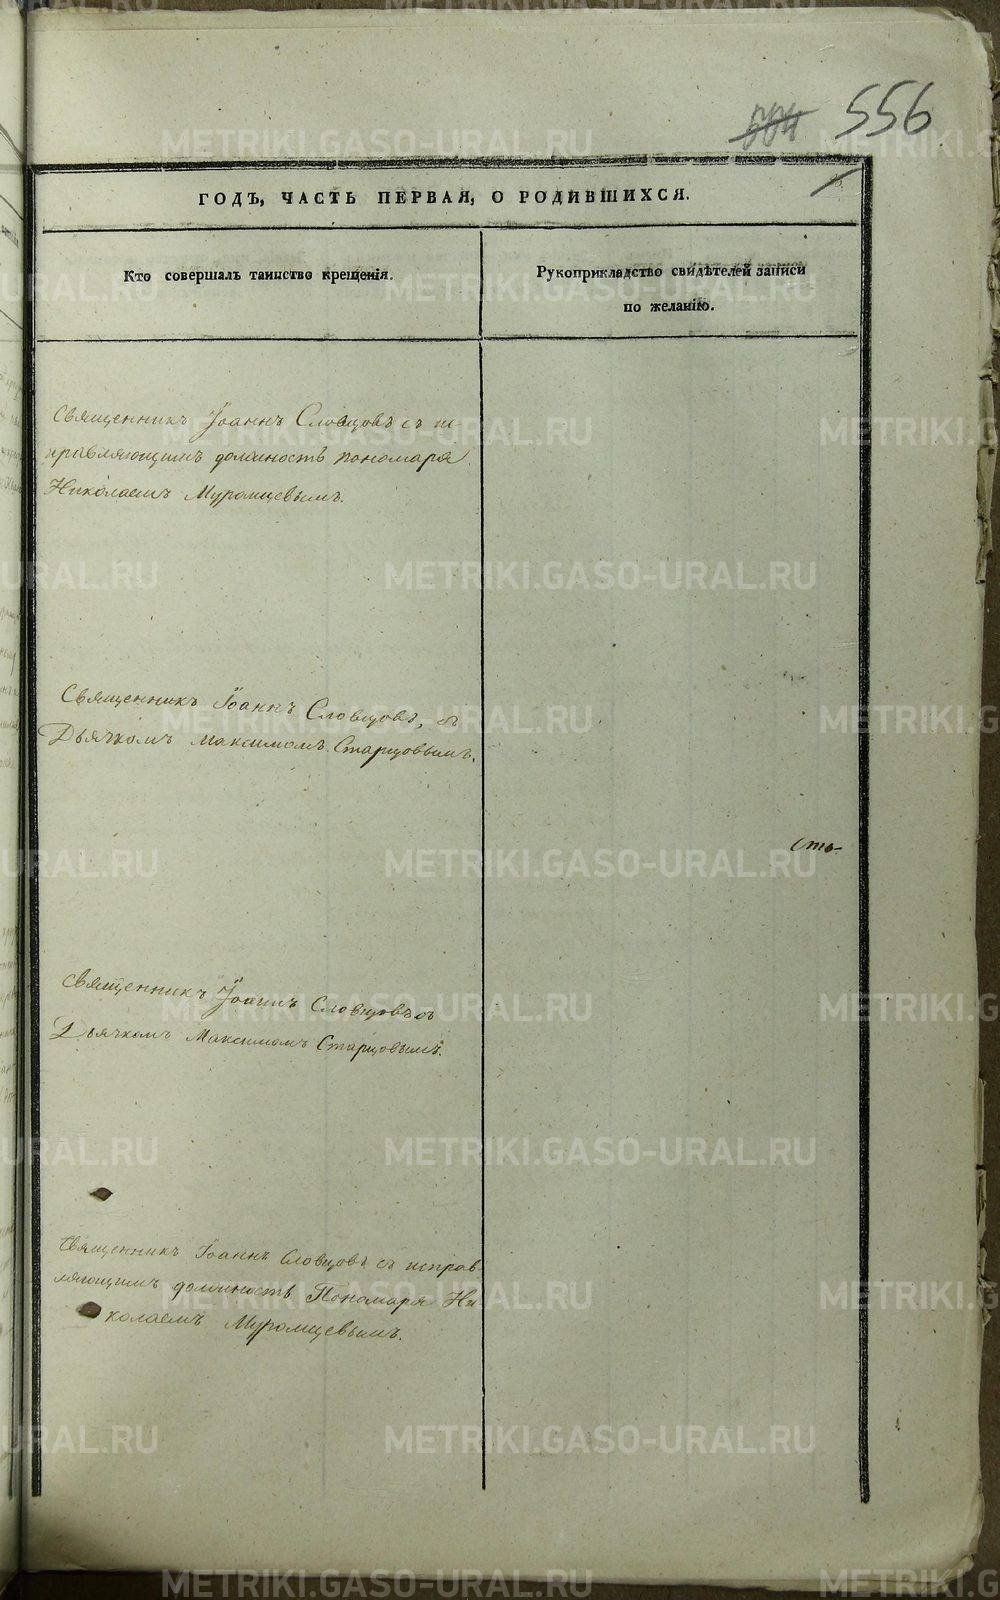 556
ГОДЪ, ЧАСТЬ ПЕРВАЯ, О РОДИВШИХСЯ.
Кто совершалъ таинство крещенія.
Рукоприкладство свидѣтелей записи
по желанію.
Священникъ Іоаннъ Словцовъ съ ис-
правляющимъ должность пономаря
Николаемъ Муромцевымъ.
Священникъ Іоаннъ Словцовъ, съ
Дьячкомъ Максимомъ Старцовымъ.
Сто-
Священникъ Іоаннъ Словцовъ съ
Дьячкомъ Максимомъ Старцовымъ.
Священникъ Іоаннъ Словцовъ съ исправ-
ляющимъ должность Пономаря Ни-
колаемъ Муромцевымъ.
METRIKI.GASO-URAL.RU